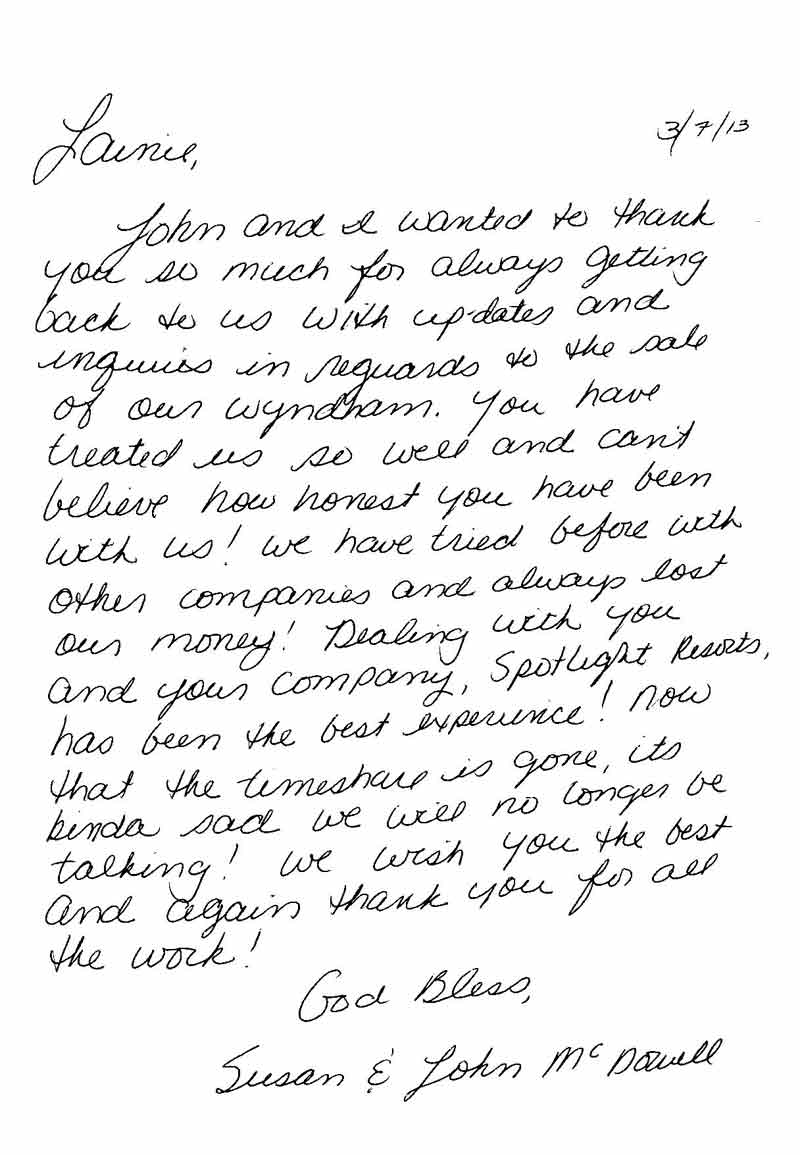 3/7/13
Lainie,
John and I wanted to thank
you so much for always getting
back to us with up-dates and
inquiries in reguards to the sale
of our wyndham. You have
treated us so well and can't
believe how honest you have been
with us! We have tried before with
other companies and always lost
our money! Dealing with you
and your company, Spotlight Resorts,
has been the best experience! Now
that the timeshare is gone, its
kinda sad we will no longer be
talking! We wish you the best
and again thank you for all
the work!
God Bless,
Susan & John McDowell